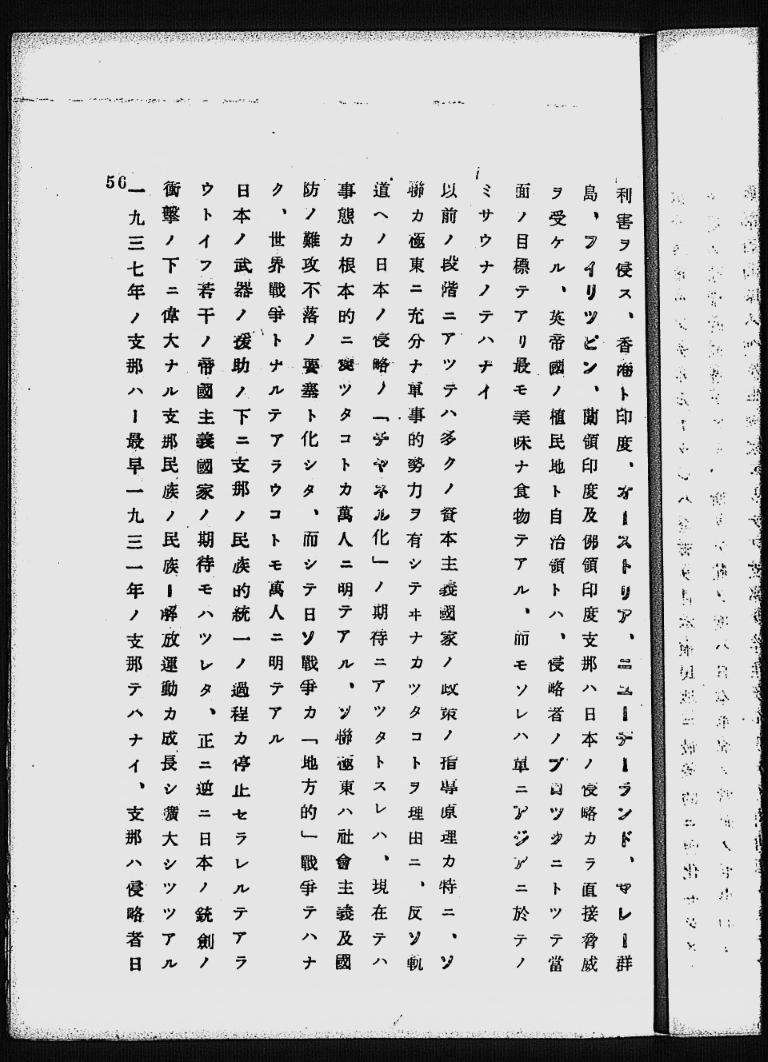 利害ヲ侵ス、香港ト印度、オーストリア、ニユーヂーランド、マレー群
島、フイリツピン、蘭領印度及佛領印度支那ハ日本ノ侵略カラ直接脅威
ヲ受ケル、英帝國ノ植民地ト自治領トハ、侵略者ノブロツクニトツテ當
面ノ目標テアリ最モ美味ナ食物テアル、而モソレハ單ニアジアニ於テノ
ミサウナノテハナイ
以前ノ段階ニアツテハ多クノ資本主義國家ノ政策ノ指導原理カ特ニ、ソ
聯カ極東ニ充分ナ軍事的勢力ヲ有シテヰナカツタコトヲ理由ニ、反ソ軌
道ヘノ日本ノ侵略ノ「チヤネル化」ノ期待ニアツタトスレハ、現在テハ
事態カ根本的ニ變ツタコトカ萬人ニ明テアル、ソ聯極東ハ社會主義及國
防ノ難攻不落ノ要塞ト化シタ、而シテ日ソ戰爭カ「地方的」戰爭テハナ
ク、世界戰爭トナルテアラウコトモ萬人ニ明テアル
日本ノ武器ノ援助ノ下ニ支那ノ民族的統一ノ過程カ停止セラレルテアラ
ウトイフ若干ノ帝國主義國家ノ期待モハツレタ、正ニ逆ニ日本ノ銃劍ノ
衝擊ノ下ニ偉大ナル支那民族ノ民族ー解放運動カ成長シ擴大シツツアル
一九三七年ノ支那ハー最早一九三一年ノ支那テハナイ、支那ハ侵略者日
56